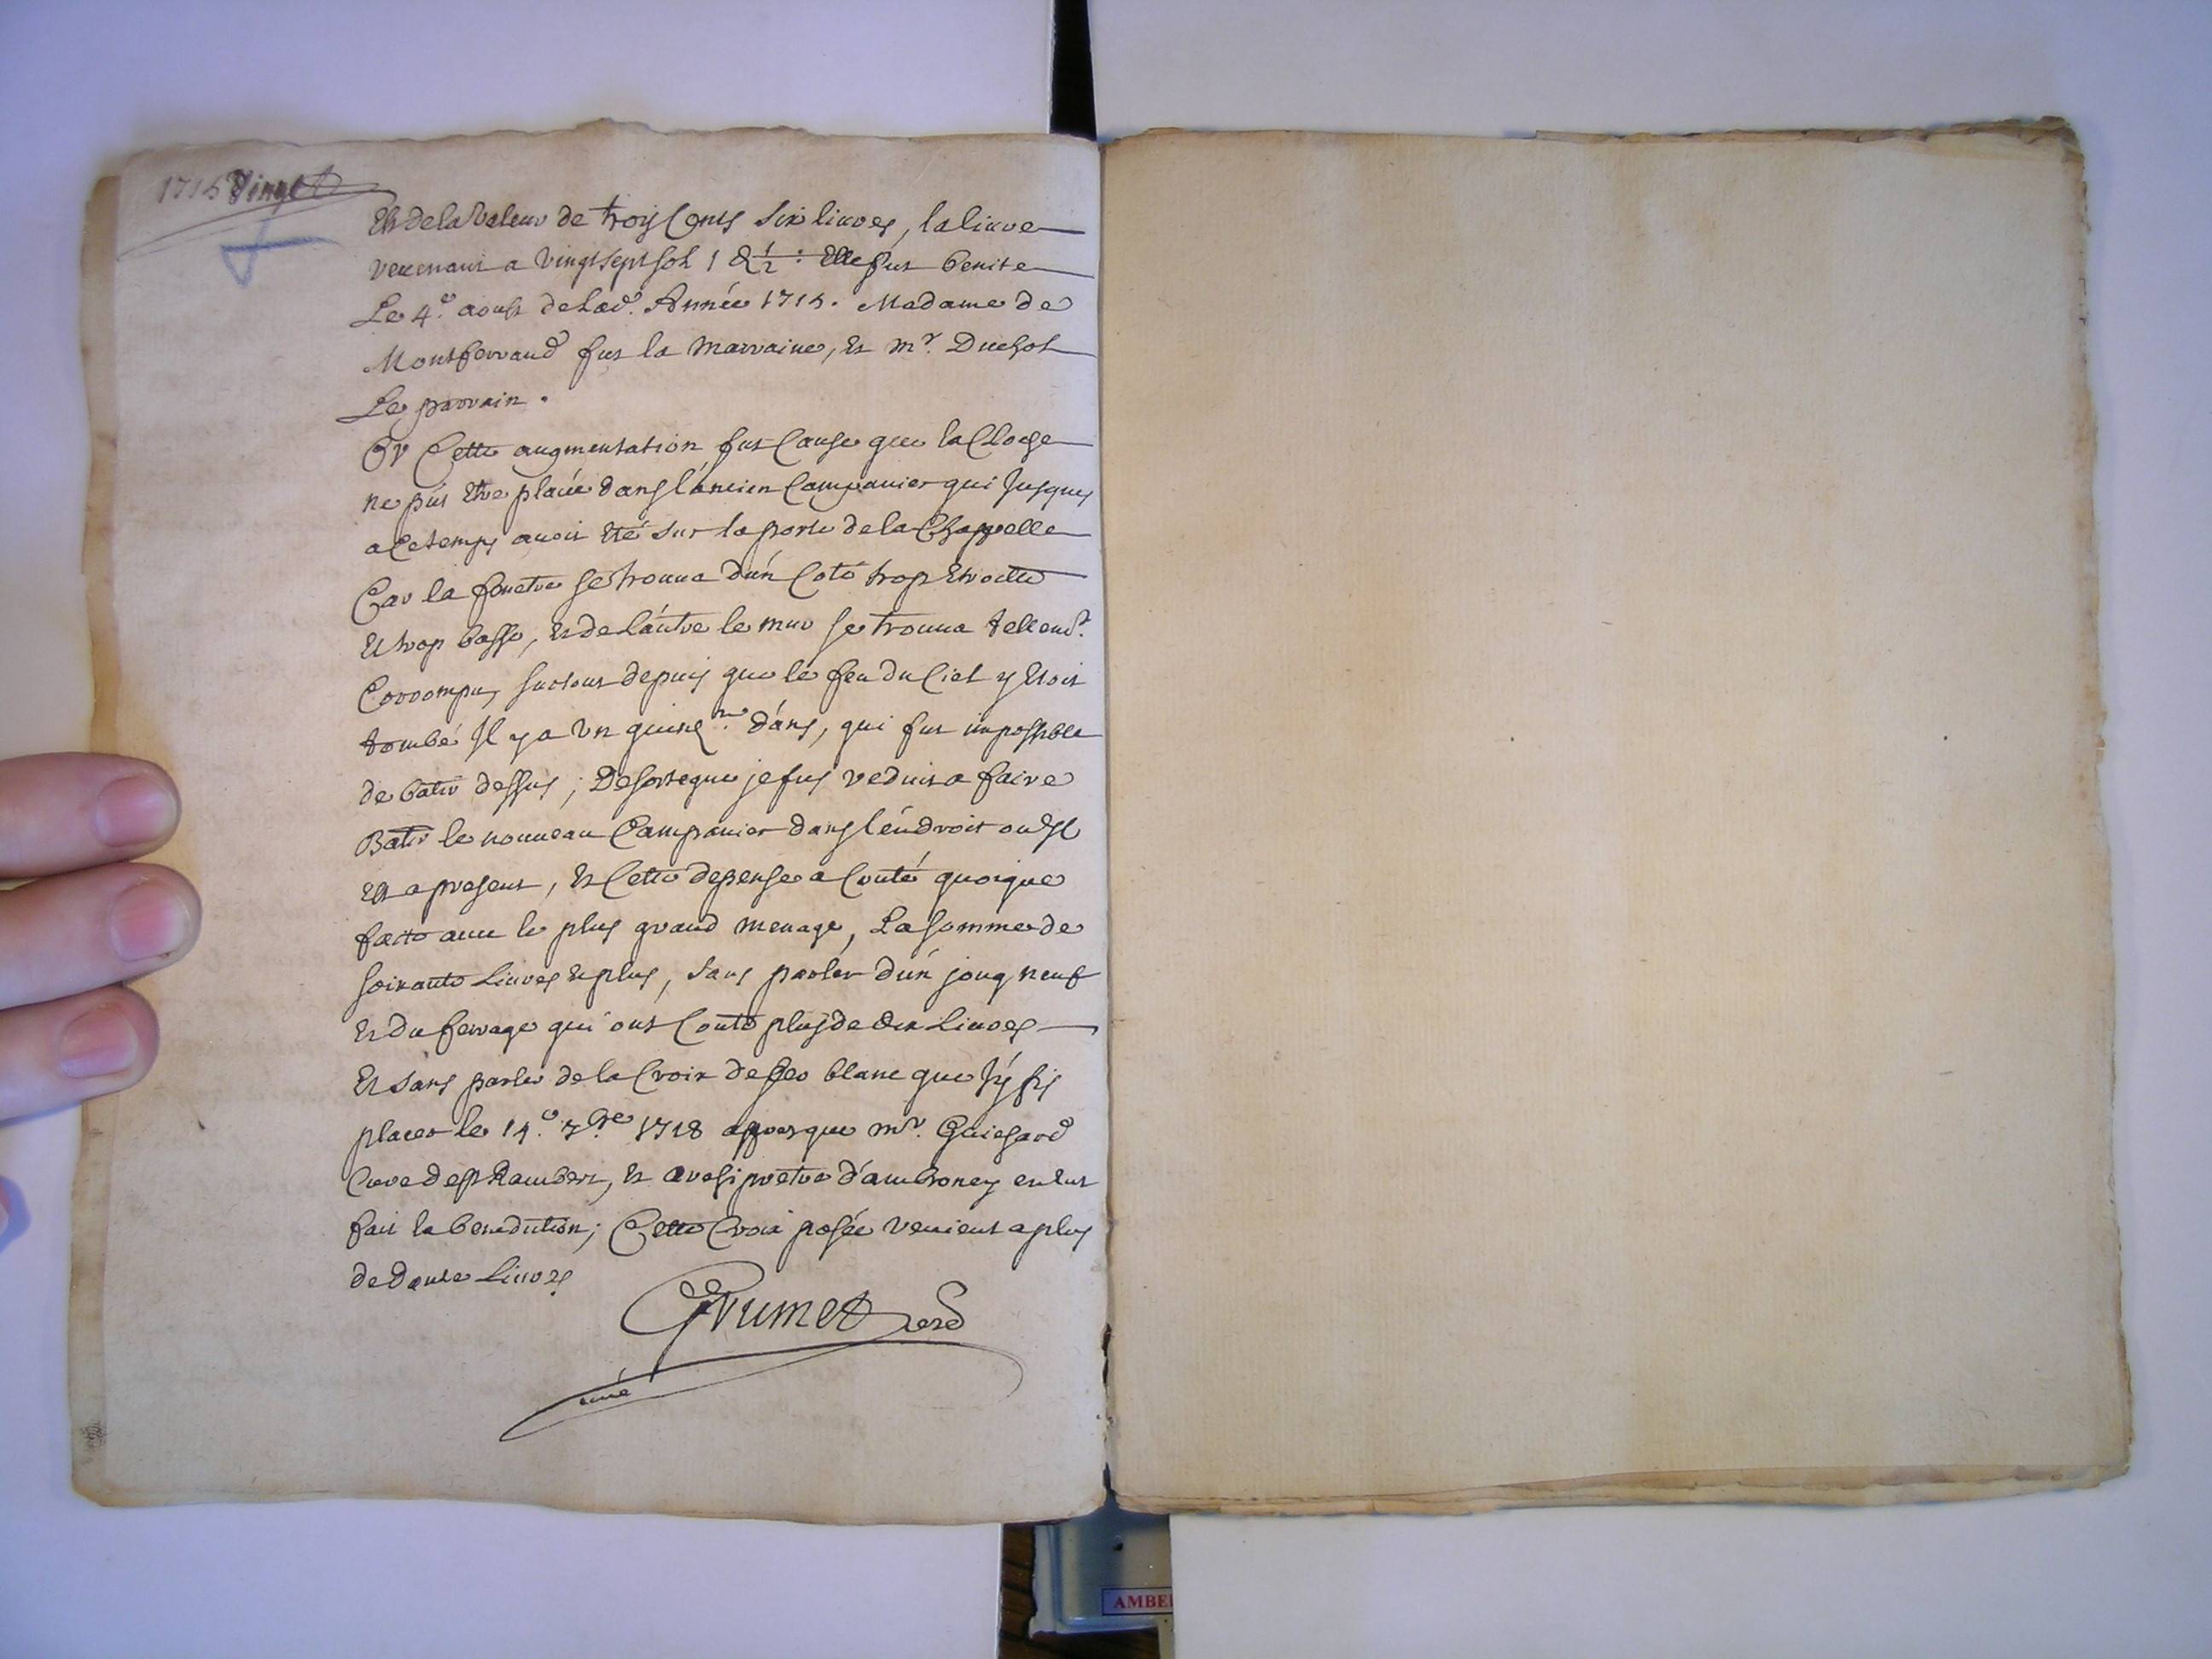 1715 Vingt
Est de la Valeur de trois Cents Six liures, la liure
reuenant a Vingt sept sols 1 & 1/2 : Elle fut benite
Le 4.e aoust de lad. Année 1715. Madame de
Montferrand fut la marraine, et mr. Duchol
Le parrain.
Or Cette augmentation fut Cause que la Cloche
ne put etre placée dans l'áncien Campanier qui Jusques
a Ce temps auoit eté sur la porte de la Chappelle
Car la fenetre se trouua dún Coté trop etroitte
et trop basse, et de láutre le mur se trouua tellemt.
Corrompu, surtout depuis que le feu du Ciel y etoit
tombé Il y a un quinz.ne dáns, qui fut impossible
de batir dessus ; De sorte que je fus reduit a faire
Batir le nouueau Campanier dans léndroit ou Il
est a present, et Cette depense a Couté quoique
faitte auec le plus grand menage, La somme de
soixante Liures et plus, sans parler dún joug neuf
et du ferrage qui ont Couté plus de dix Liures
et sans parler de la Croix de fer blanc que J'y fis
placer le 14.e 7bre 1718 apres que mr. Guichard
Curé de st Rambert, et archipretre d'ambronay en eut
fait la benediction ; Cette Croix posée reuient a plus
de douze Liures
Grumet
curé
AMBE